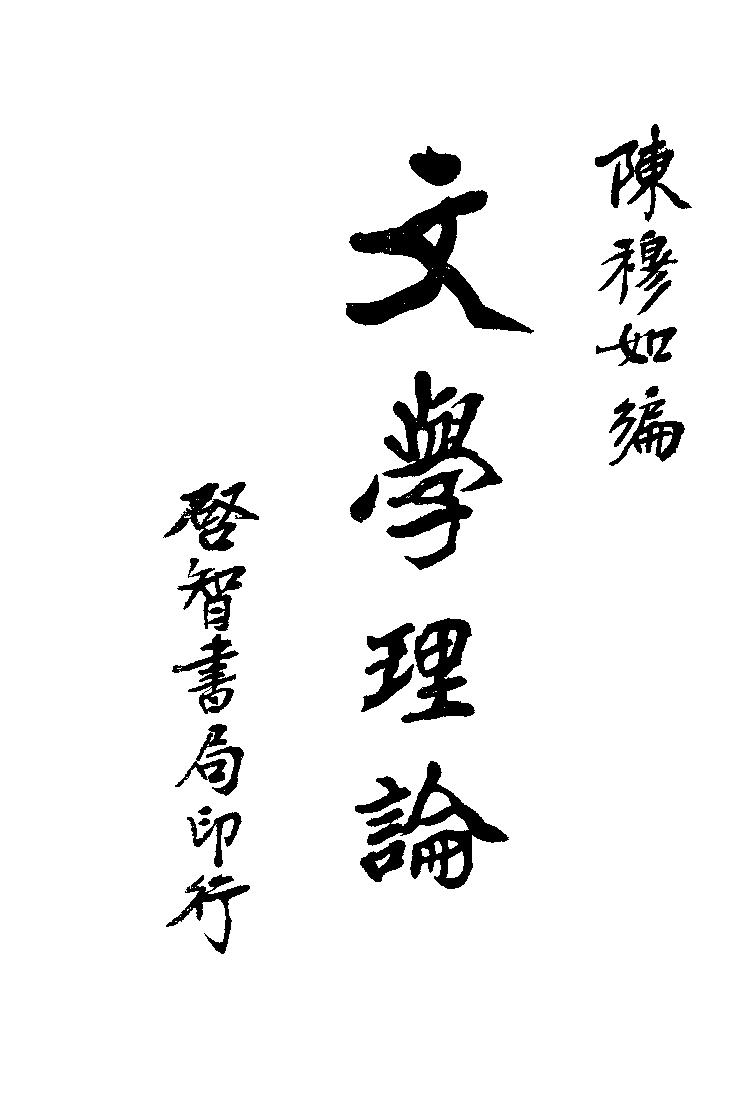 陳穆如編
文學理論
啓智書局印行